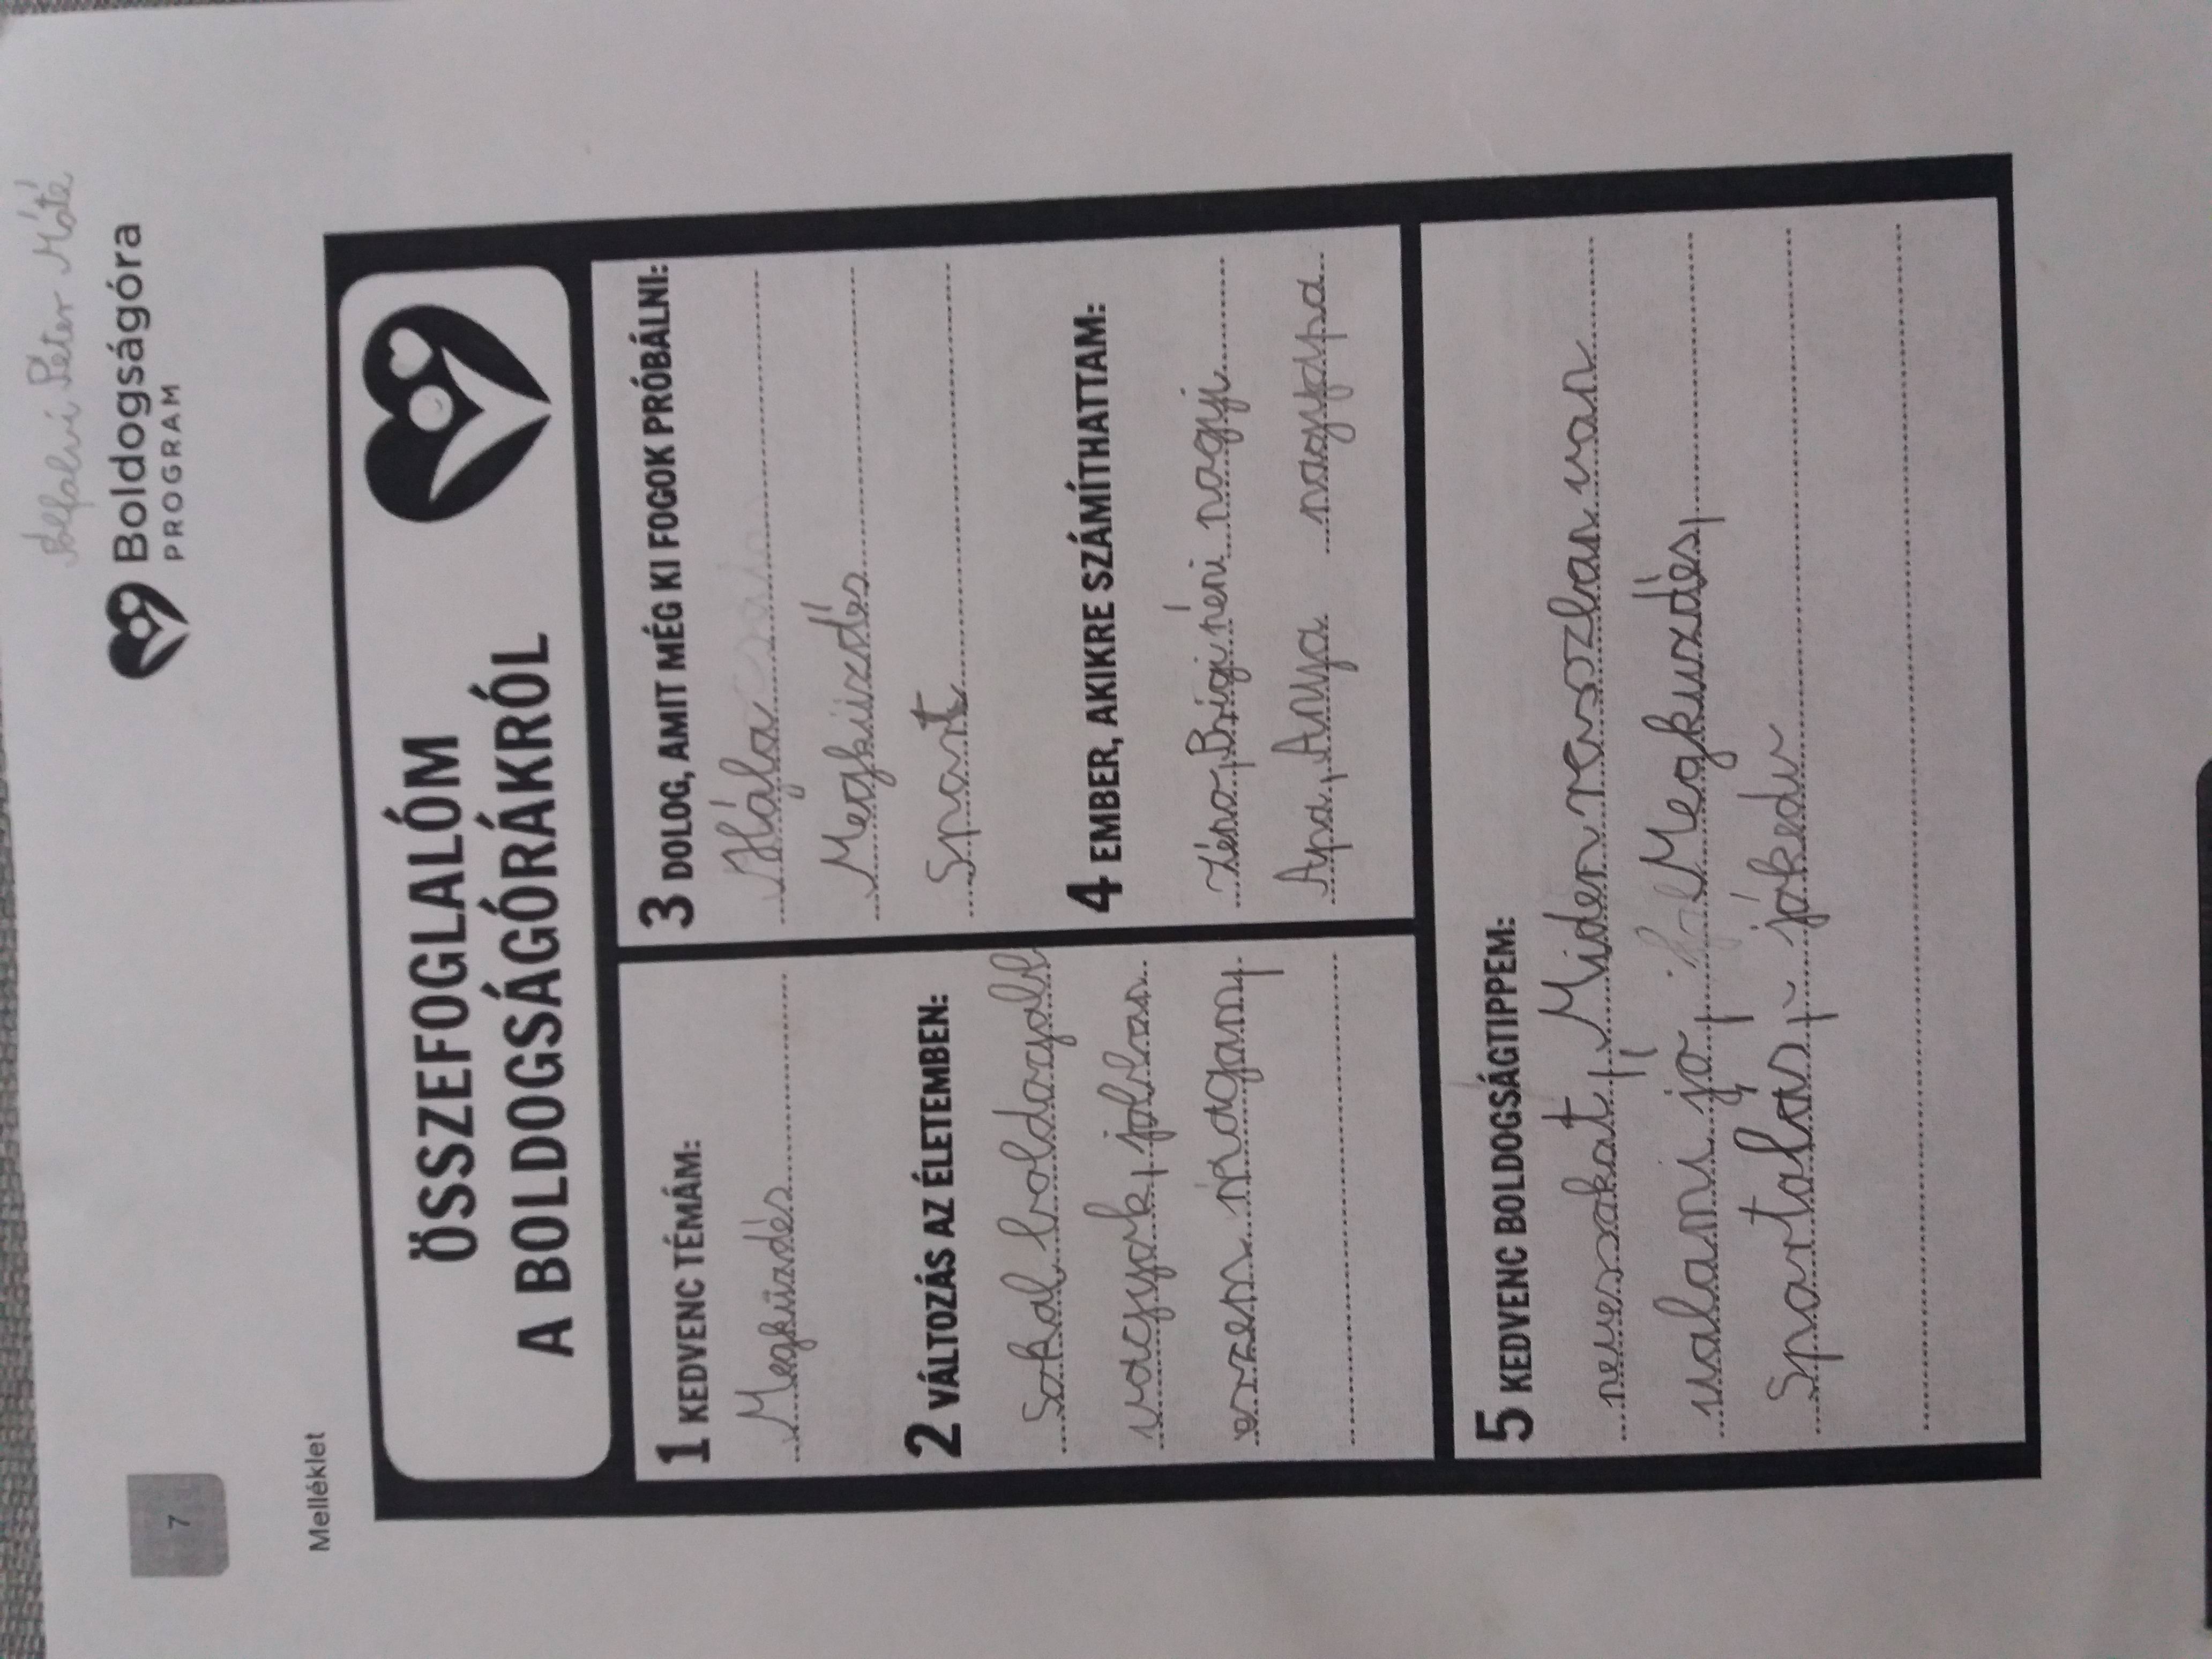 Péter Máté
7
Boldogságóra
PROGRAM
Melléklet
ÖSSZEFOGLALÓM
A BOLDOGSÁGÓRÁKRÓL
1 KEDVENC TÉMÁM:
Megküzdés
2 VÁLTOZÁS AZ ÉLETEMBEN:
Sokal boldogabb
vagyok, jobban
érzem magam,
3 DOLOG, AMIT MÉG KI FOGOK PRÓBÁLNI:
Hála
Megküzdés
Sport
4 EMBER, AKIKRE SZÁMÍTHATTAM:
Brigi néni nagyi
Apa, Anya nagypapa
5 KEDVENC BOLDOGSÁGTIPPEM:
nevessakat, Miden rosszban van
valami jó, Megkuzdés,
Sportolás, jókedv